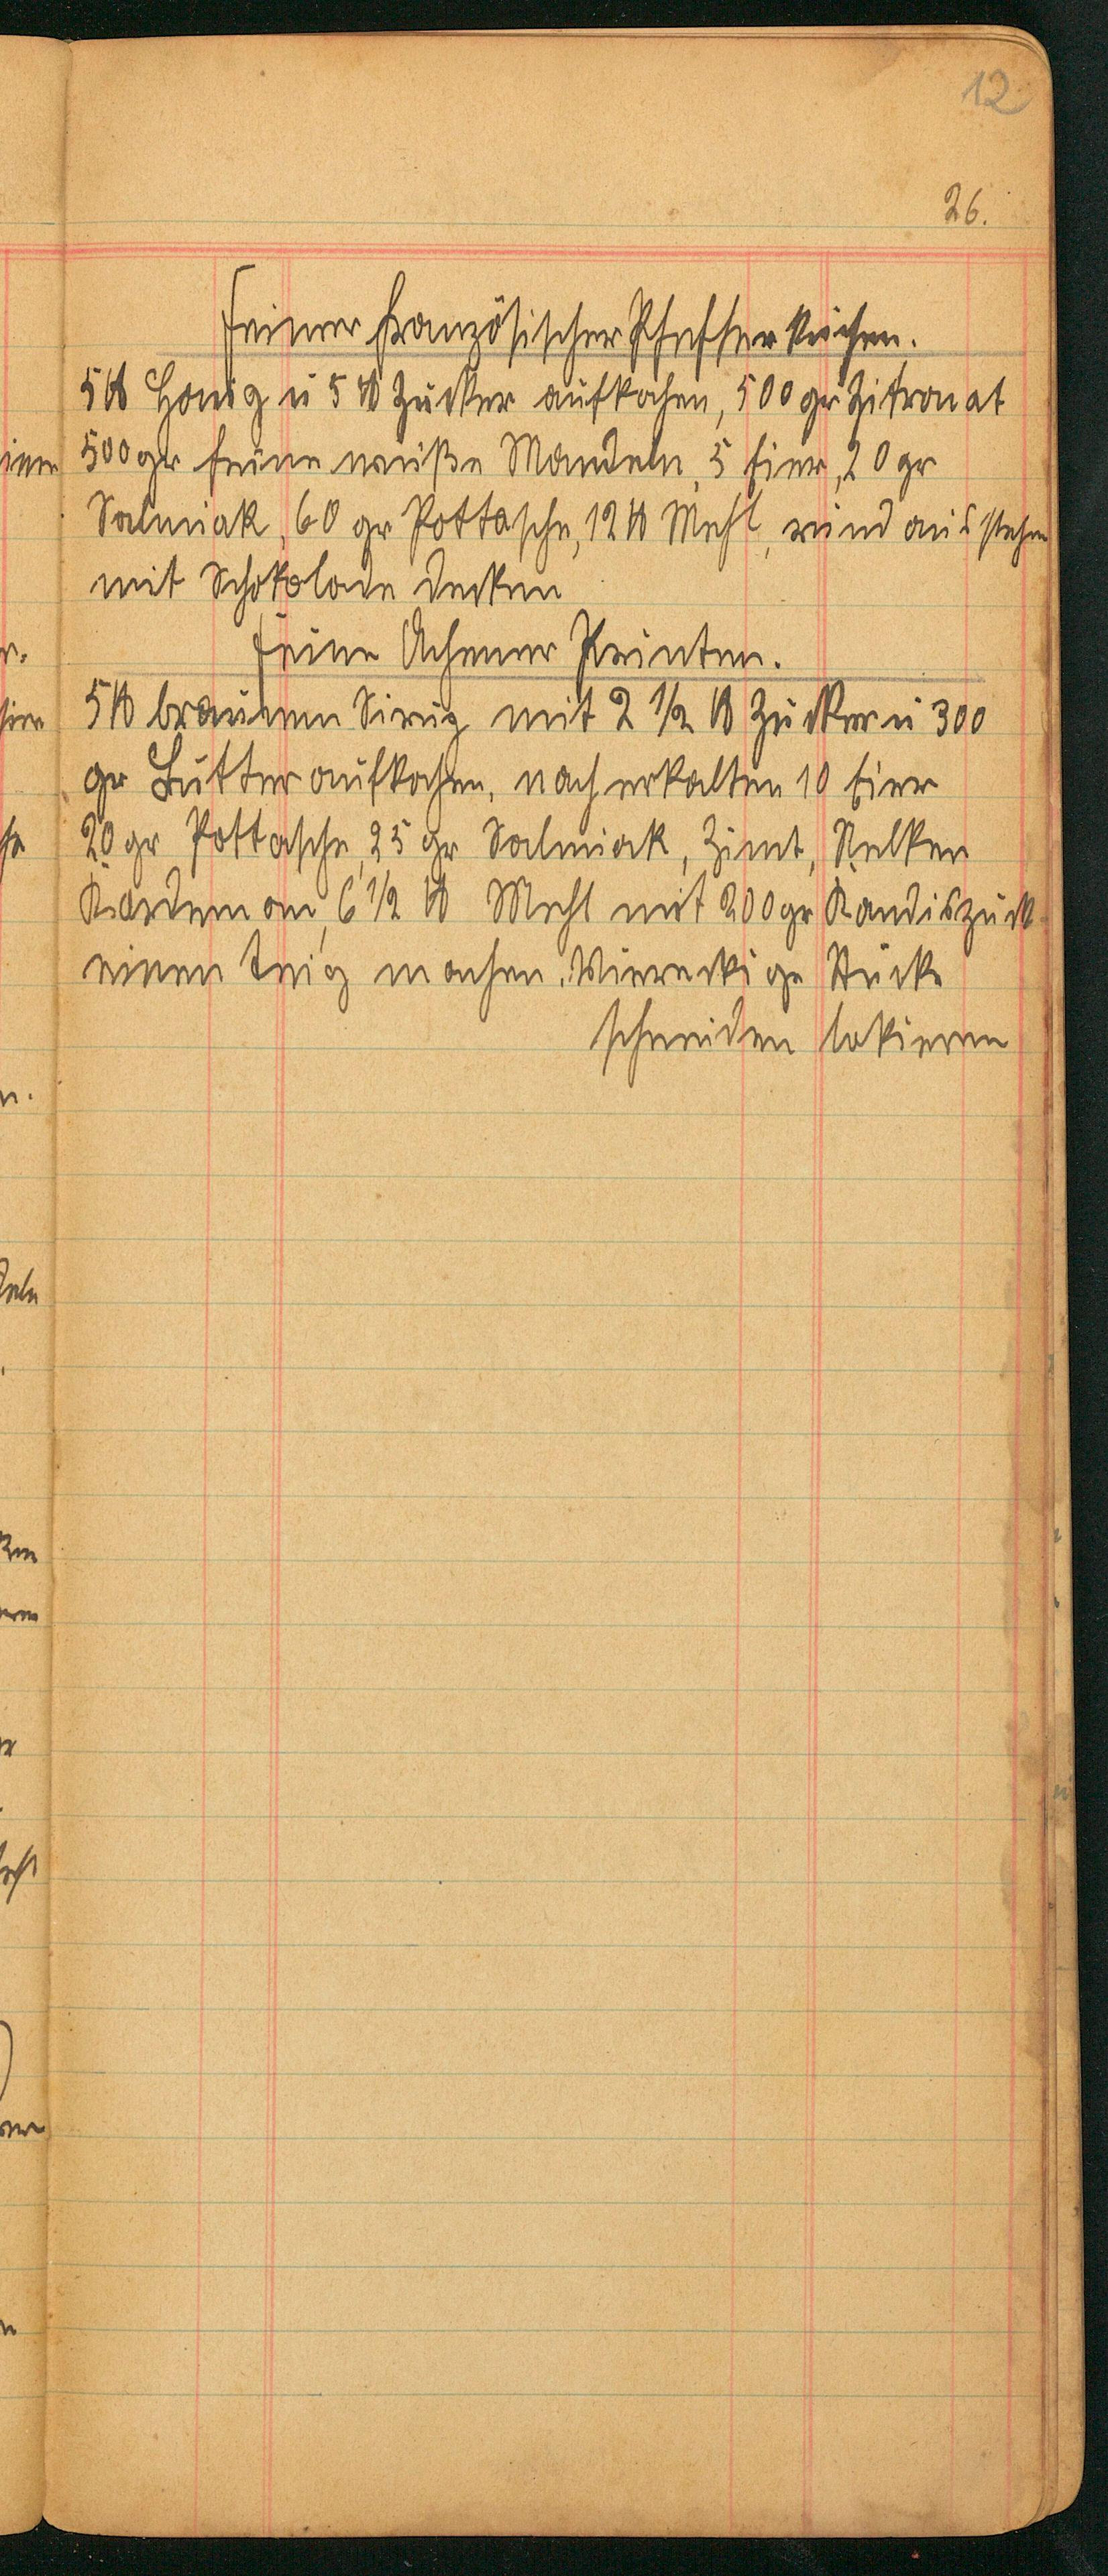 12
26.
Feiner französischer Pfefferkuchen.
5 ℔ Honig u 5 ℔ Zucker aufkochen, 500 gr Zitronat
500 gr feine weiße Mandeln, 5 Eier, 20 gr
Salmiak, 60 gr Pottasche, 12 ℔ Mehl, rund ausstehen
mit Schokolade decken
Feine Achener Printen.
5 ℔ braunen Sirug mit 2 1/2 ℔ Zucker u 300
gr Butter aufkochen, nach erkalten 10 Eier
20 gr Pottasche, 25 gr Salmiak, Zimt, Nelken
Kardemom, 6 1/2 ℔ Mehl mit 200 gr Kandiszuck
einen Teig machen. Viereckige Stücke
schneiden lakieren